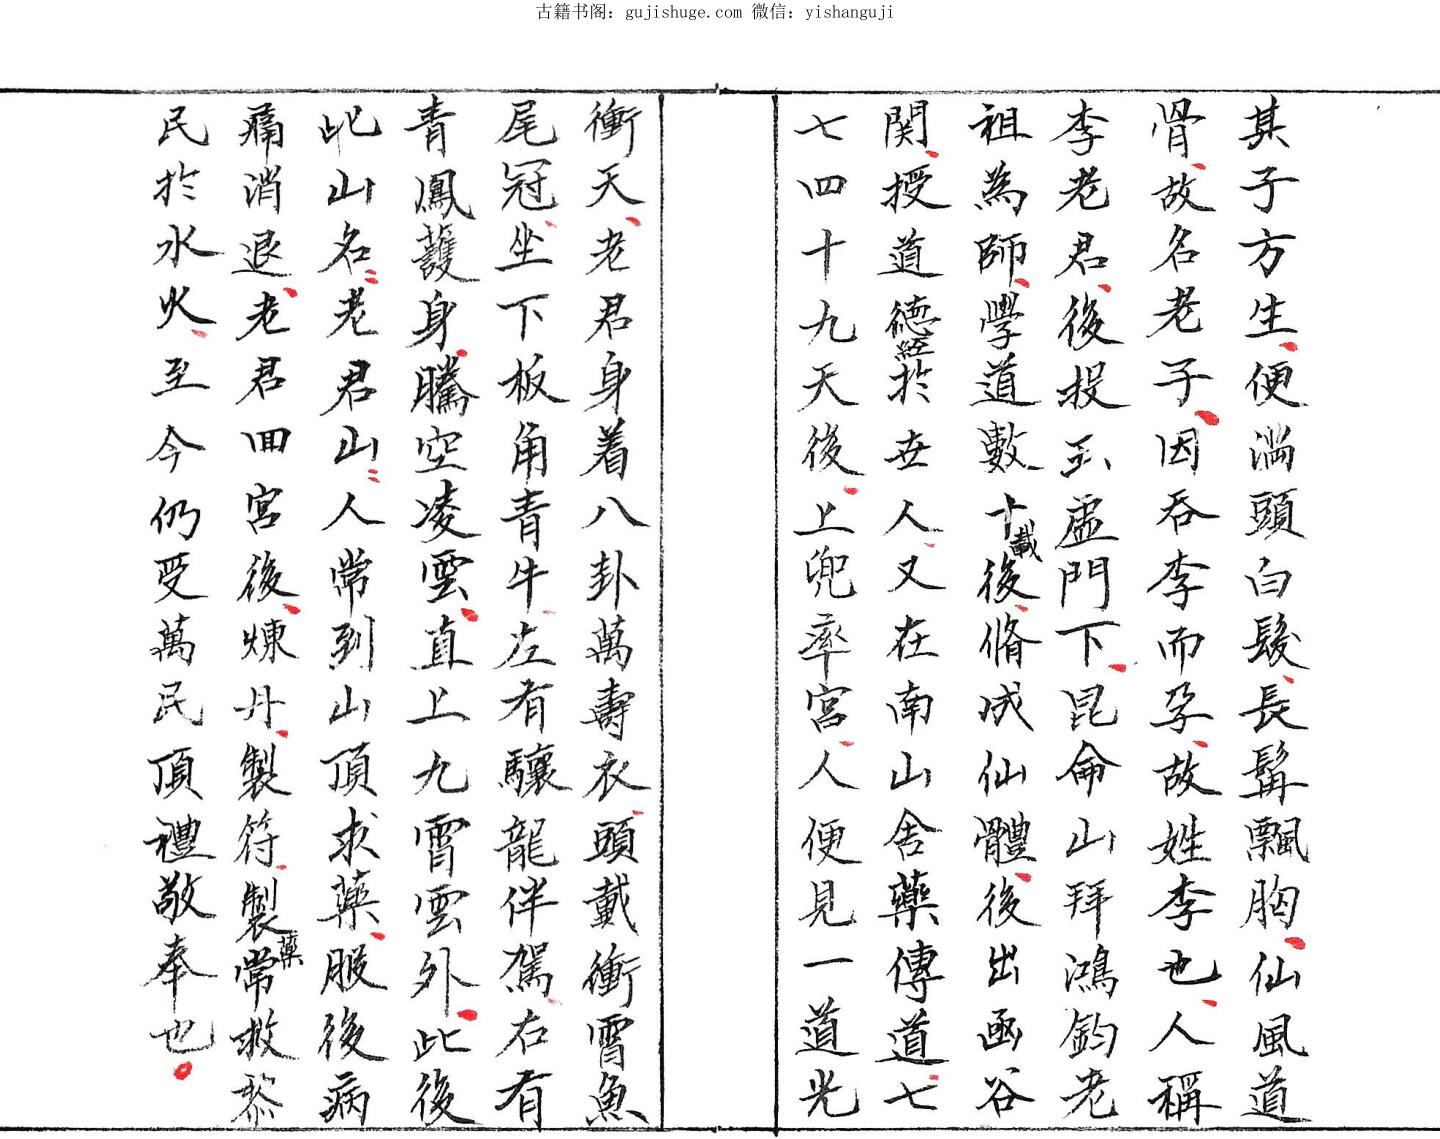 古籍书阁：gujishuge.com 微信：yishanguji
其子方生便满頭白髮長髯飄胸仙風道
骨故名老子因吞李而孕故姓李也人稱
李老君後投玉虛門下昆侖山拜鴻鈞老
祖為師學道數十載後脩成仙體後出函谷
関授道德經於世人又在南山舍藥傳道七
七四十九天後上兜率宮人便見一道光
衝天老君身着八卦萬壽衣頭戴衝霄魚
尾冠坐下板角青牛左有驤龍伴駕右有
青鳳護身騰空凌雲直上九霄雲外此後
此山名老君山人常到山頂求藥服後病
痛消退老君回宮後煉丹製符製藥常救黎
民於水火至今仍受萬民頂禮敬奉也